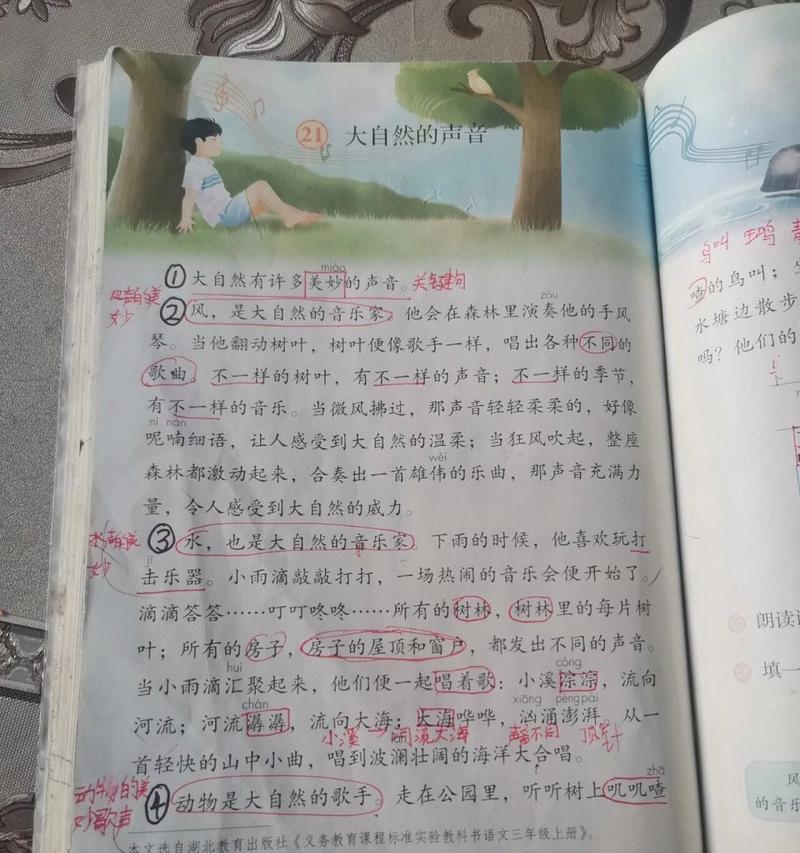 21 大自然的声音
miào
① 大自然有许多美妙的声音。关键句
zòu
② 风，是大自然的音乐家，他会在森林里演奏他的手风
琴。当他翻动树叶，树叶便像歌手一样，唱出各种不同的
歌曲。不一样的树叶，有不一样的声音；不一样的季节，
有不一样的音乐。当微风拂过，那声音轻轻柔柔的，好像
ní nán
呢喃细语，让人感受到大自然的温柔；当狂风吹起，整座
wěi
森林都激动起来，合奏出一首雄伟的乐曲，那声音充满力
量，令人感受到大自然的威力。
③ 水，也是大自然的音乐家。下雨的时候，他喜欢玩打
jī
击乐器。小雨滴敲敲打打，一场热闹的音乐会便开始了。
滴滴答答……叮叮咚咚……所有的树林，树林里的每片树
叶；所有的房子，房子的屋顶和窗户，都发出不同的声音。
huì cóng
当小雨滴汇聚起来，他们便一起唱着歌：小溪淙淙，流向
chán xiōng pēng pài
河流；河流潺潺，流向大海；大海哗哗，汹涌澎湃。从一
小溪 河流 大海 声音不同 顶针
首轻快的山中小曲，唱到波澜壮阔的海洋大合唱。
zhā
④ 动物是大自然的歌手。走在公园里，听听树上叽叽喳
妙歌声
本文选自湖北教育出版社《义务教育课程标准实验教科书语文三年级上册》。
鸟叫
喳的鸟叫；
水塘边散步
吗？他们的
朗读
填一
风
的音乐